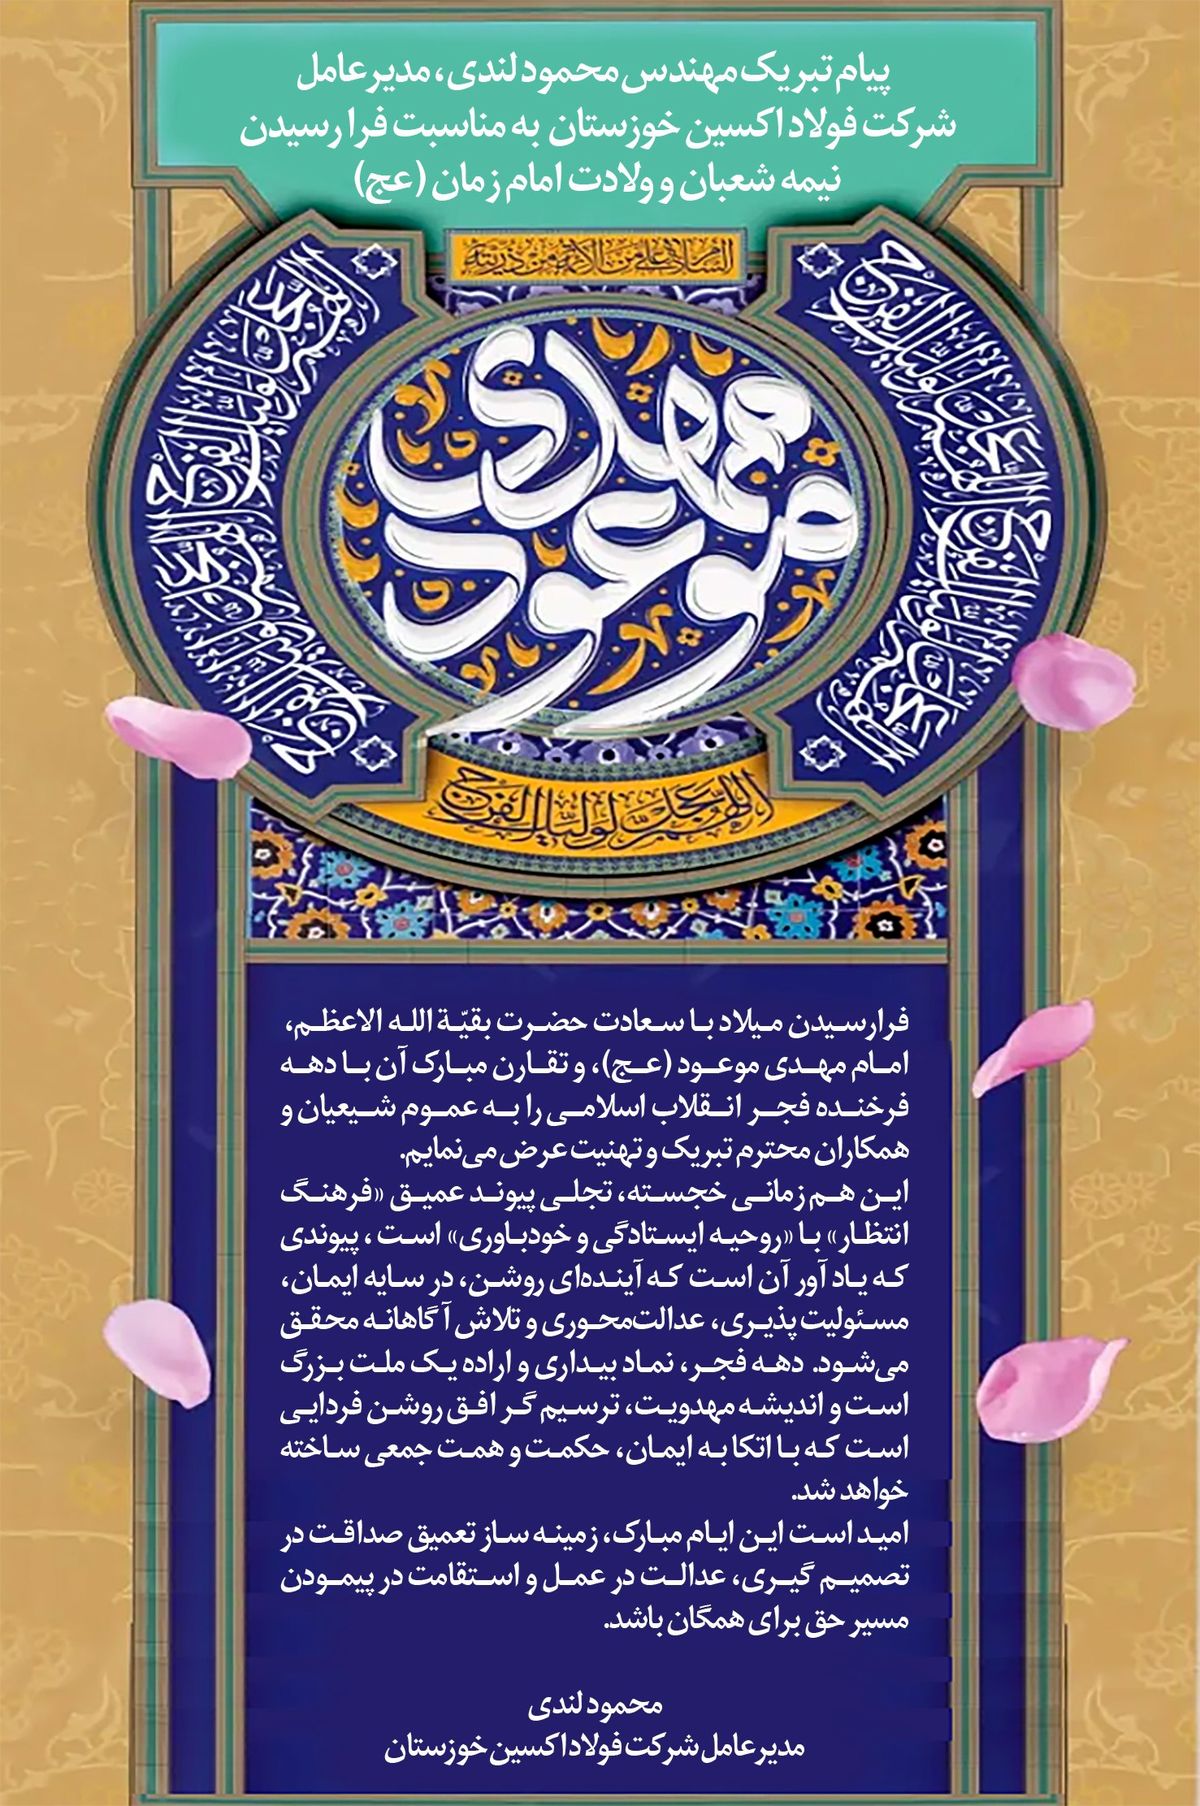 پیام تبریک مهندس محمود لندی، مدیرعامل
شرکت فولاد اکسین خوزستان به مناسبت فرا رسیدن
نیمه شعبان و ولادت امام زمان (عج)
مهدی
موعود
اللهم عجل لولیک الفرج
فرارسیدن میلاد با سعادت حضرت بقیّة الله الاعظم،
امام مهدی موعود (عج)، و تقارن مبارک آن با دهه
فرخنده فجر انقلاب اسلامی را به عموم شیعیان و
همکاران محترم تبریک و تهنیت عرض می‌نمایم.
این هم‌زمانی خجسته، تجلی پیوند عمیق «فرهنگ
انتظار» با «روحیه ایستادگی و خودباوری» است، پیوندی
که یاد آور آن است که آینده‌ای روشن، در سایه ایمان،
مسئولیت پذیری، عدالت‌محوری و تلاش آگاهانه محقق
می‌شود. دهه فجر، نماد بیداری و اراده یک ملت بزرگ
است و اندیشه مهدویت، ترسیم گر افق روشن فردایی
است که با اتکا به ایمان، حکمت و همت جمعی ساخته
خواهد شد.
امید است این ایام مبارک، زمینه ساز تعمیق صداقت در
تصمیم گیری، عدالت در عمل و استقامت در پیمودن
مسیر حق برای همگان باشد.
محمود لندی
مدیرعامل شرکت فولاد اکسین خوزستان